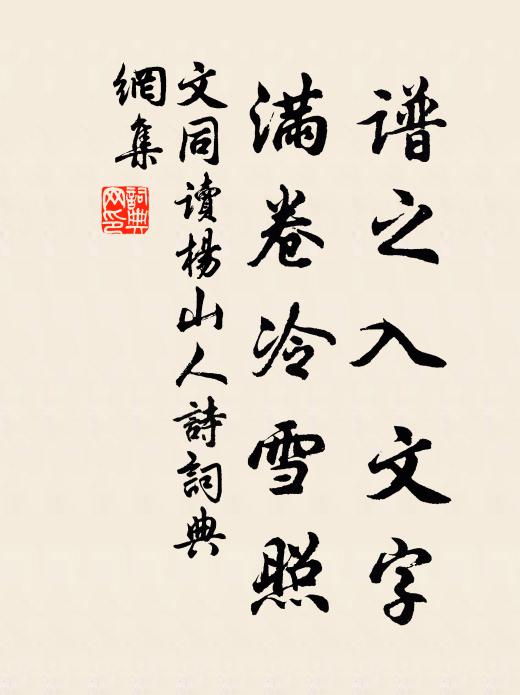 谱之入文字
满卷冷雪照
文同讀楊山人詩詞典
網集
詞典
网印